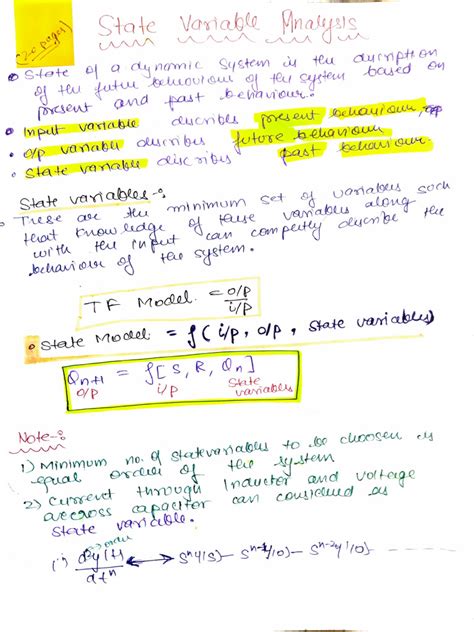 (20 pages)
State Variable Analysis
State of a dynamic system is the discription
of the future behaviour of the system based on
present and past behaviour.
Input variable describes present behaviour,
o/p variable describes future behaviour
State variable discribes past behaviour.
State variables -:
These are the minimum set of variables such
that knowledge of these variables along
with the input can completly describe the
behaviour of the system.
TF Model = o/p
i/p
State Model = f( i/p, o/p, state variables)
Qn+1 = f[ S, R, Qn]
o/p i/p State
variables
Note -:
1) Minimum no. of statevariables to be choosen is
equal order of the system
2) Current through Inductor and voltage
accross capacitor can considered as
State variable.
(1) d^n y(t) ⟷ S^n Y(S) - S^n-1 y(0) - S^n-2 y'(0) - - - - -
dt^n